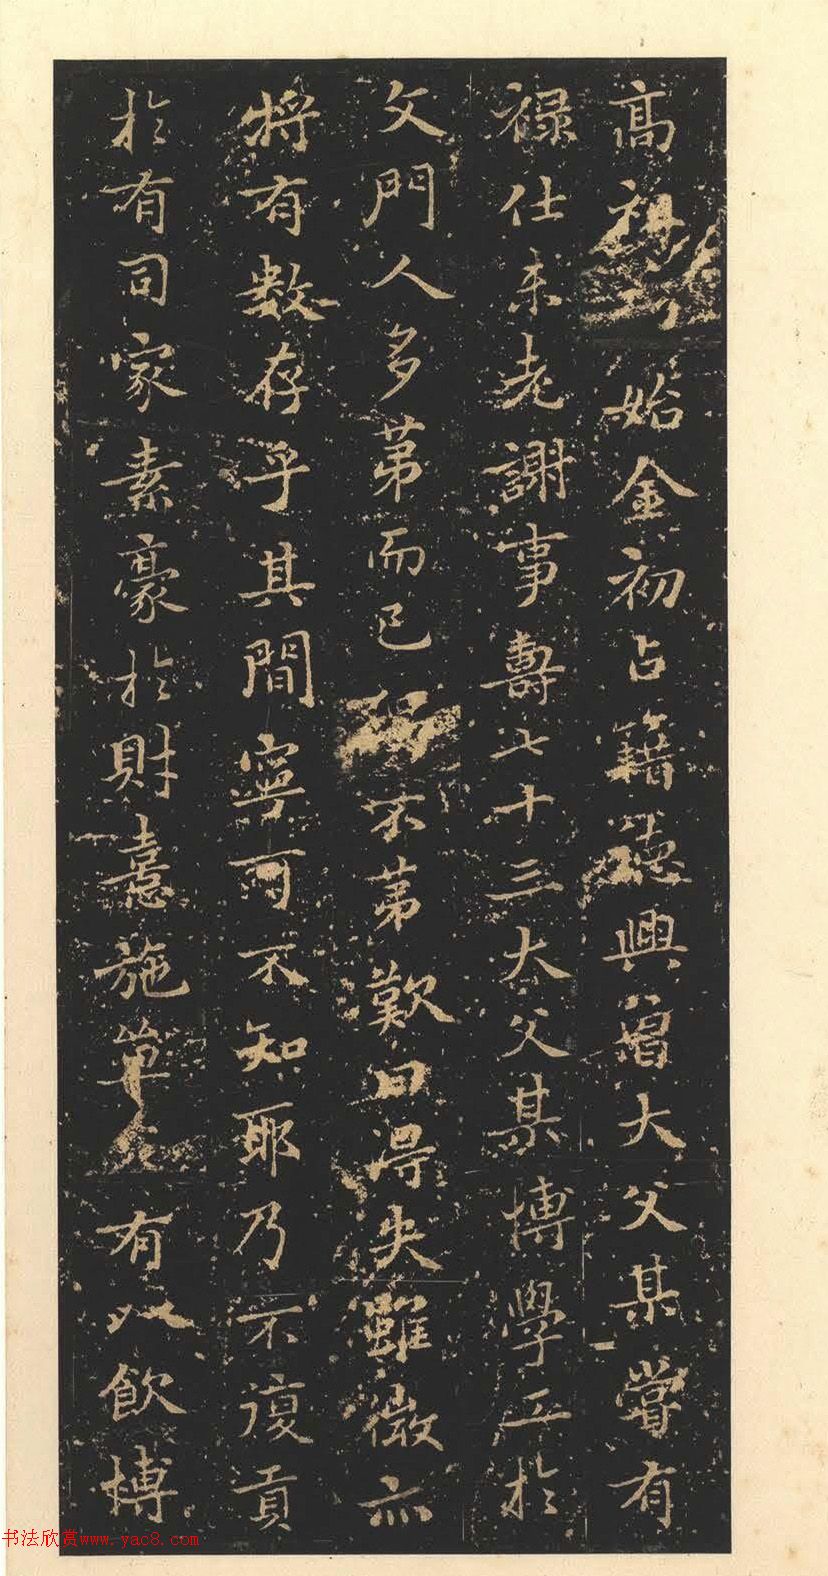 高祖始金初占籍德興曾大父某嘗有
禄仕未老謝事壽七十三大父某博學工於
文門人多第而已獨不第歎曰得失雖微亦
将有數存乎其間寧可不知耶乃不復貢
於有司家素豪於財憙施單人有以飲博
书法欣赏www.yac8.com